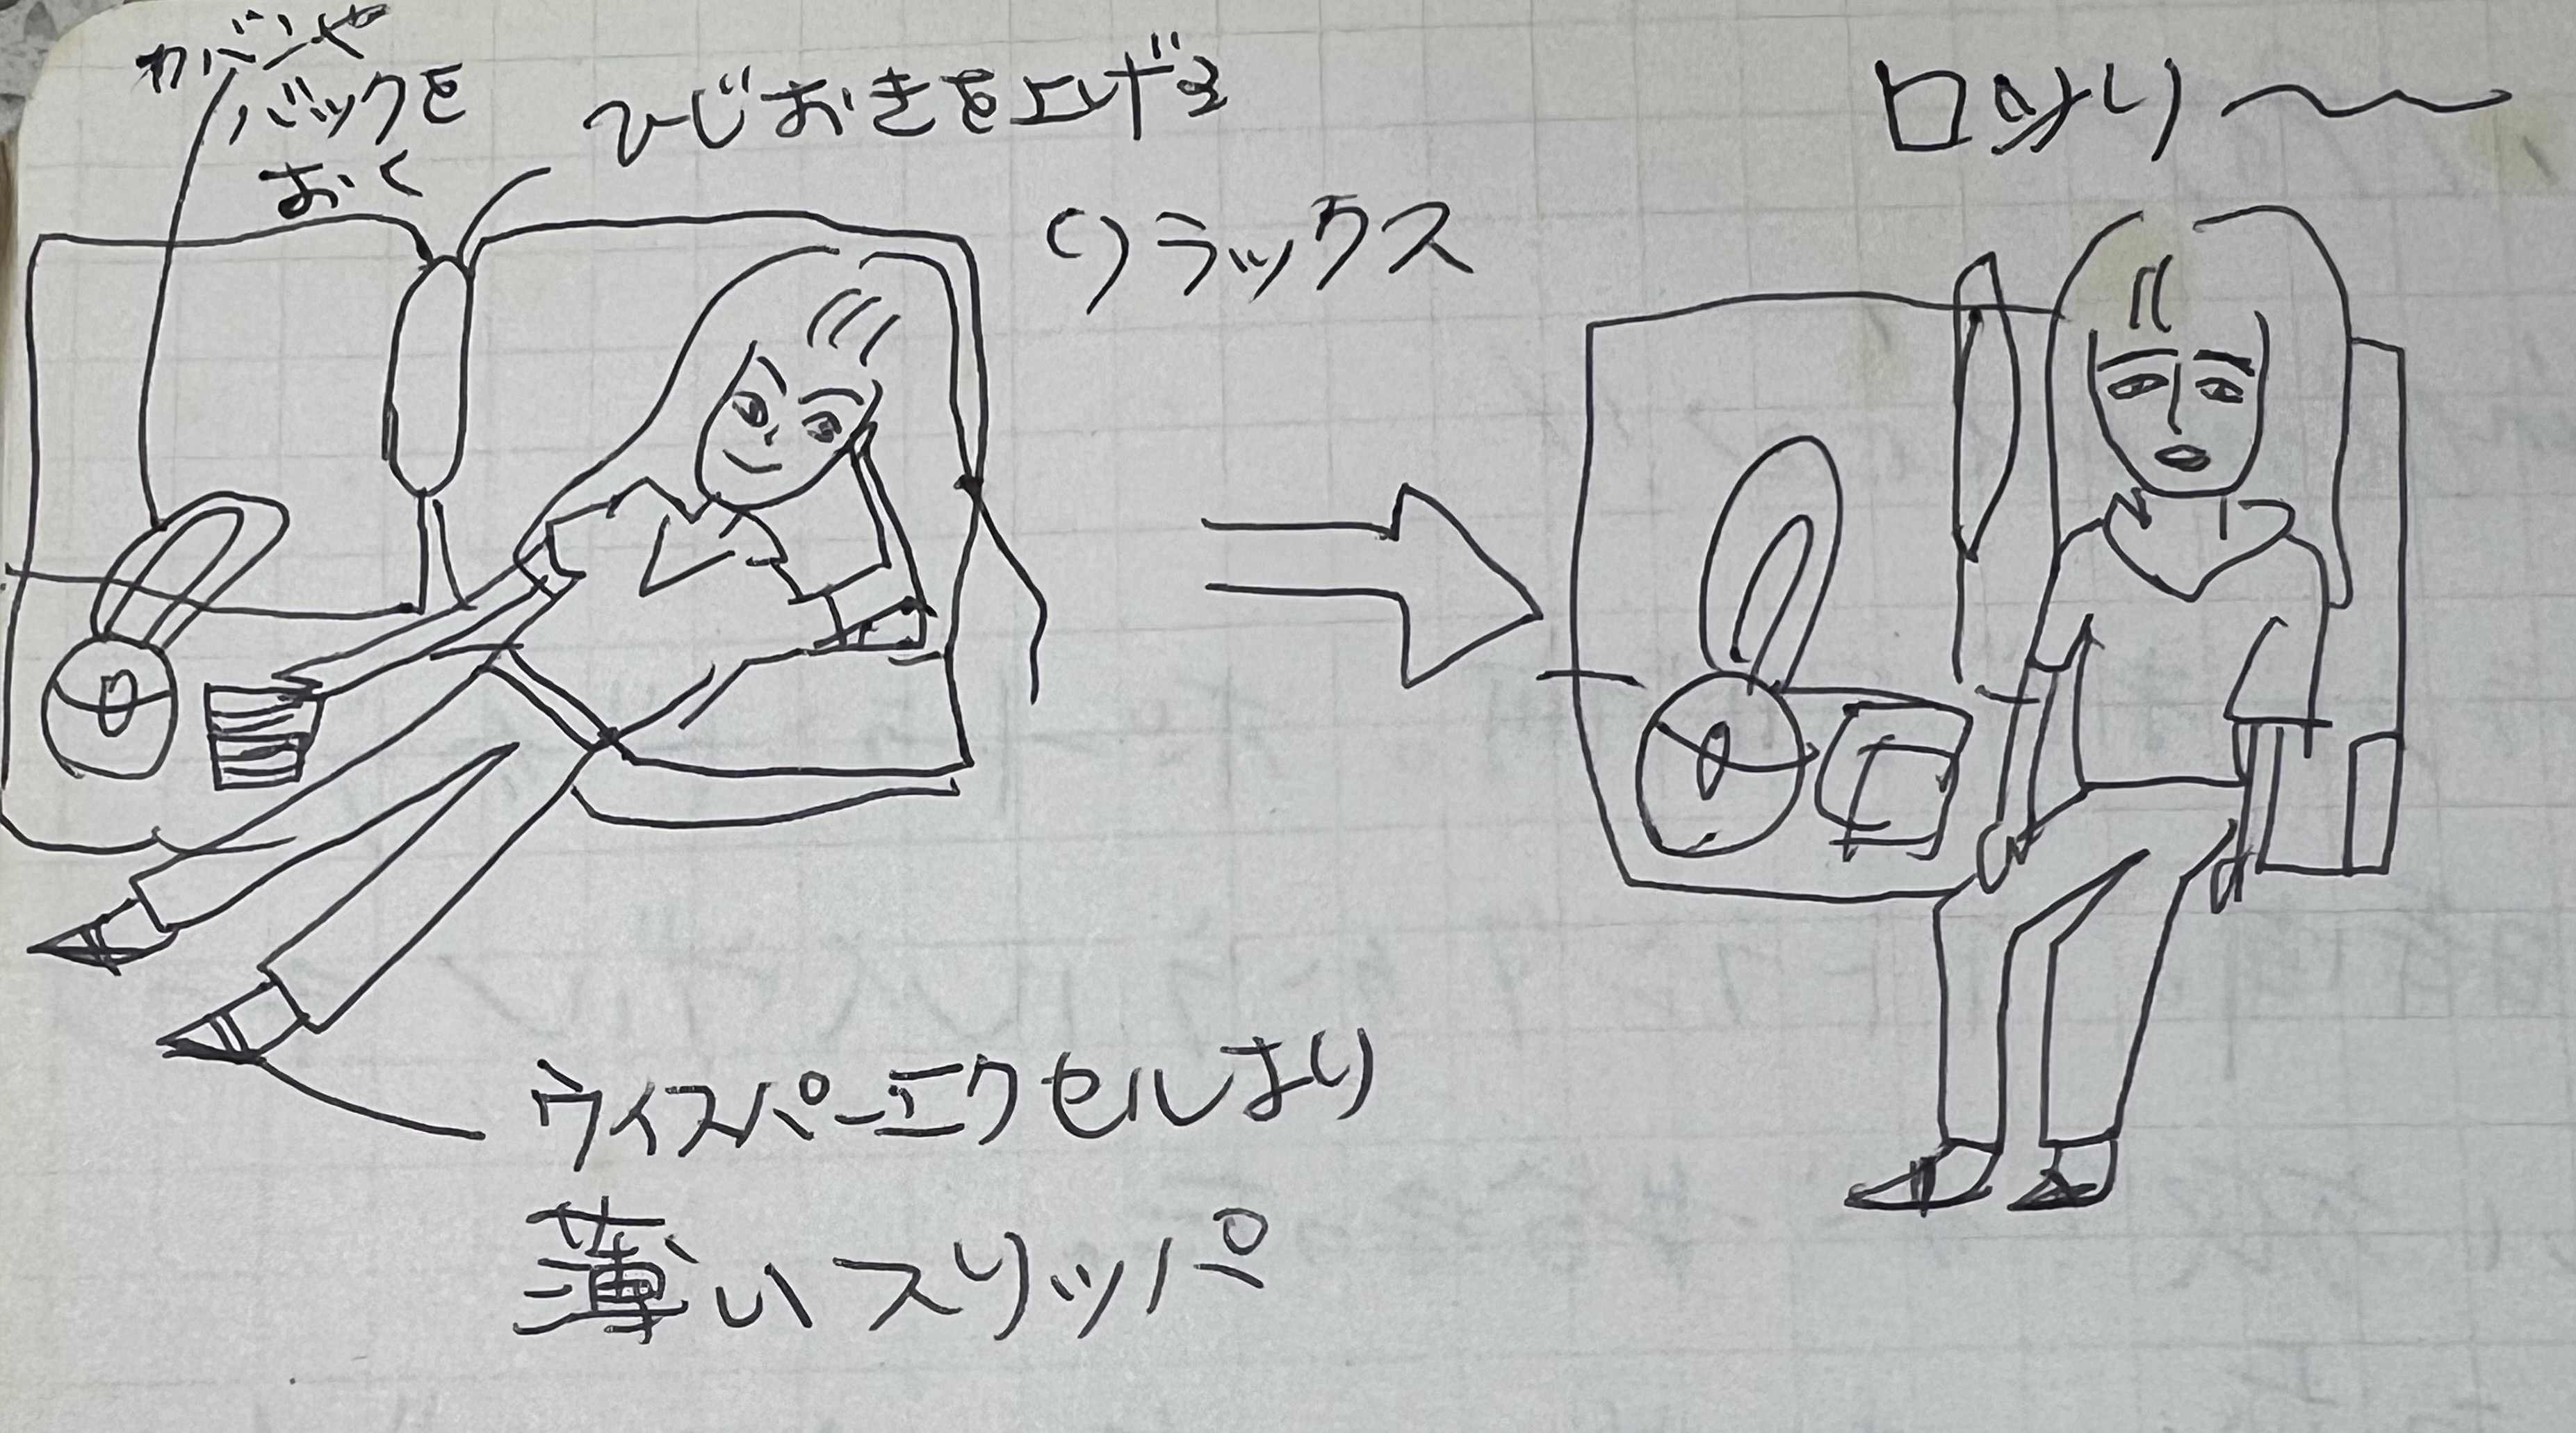 カバンや
バックを
おく
ひじおきを上げる
リラックス
ウィスペーエクセルより
薄いスリッパ